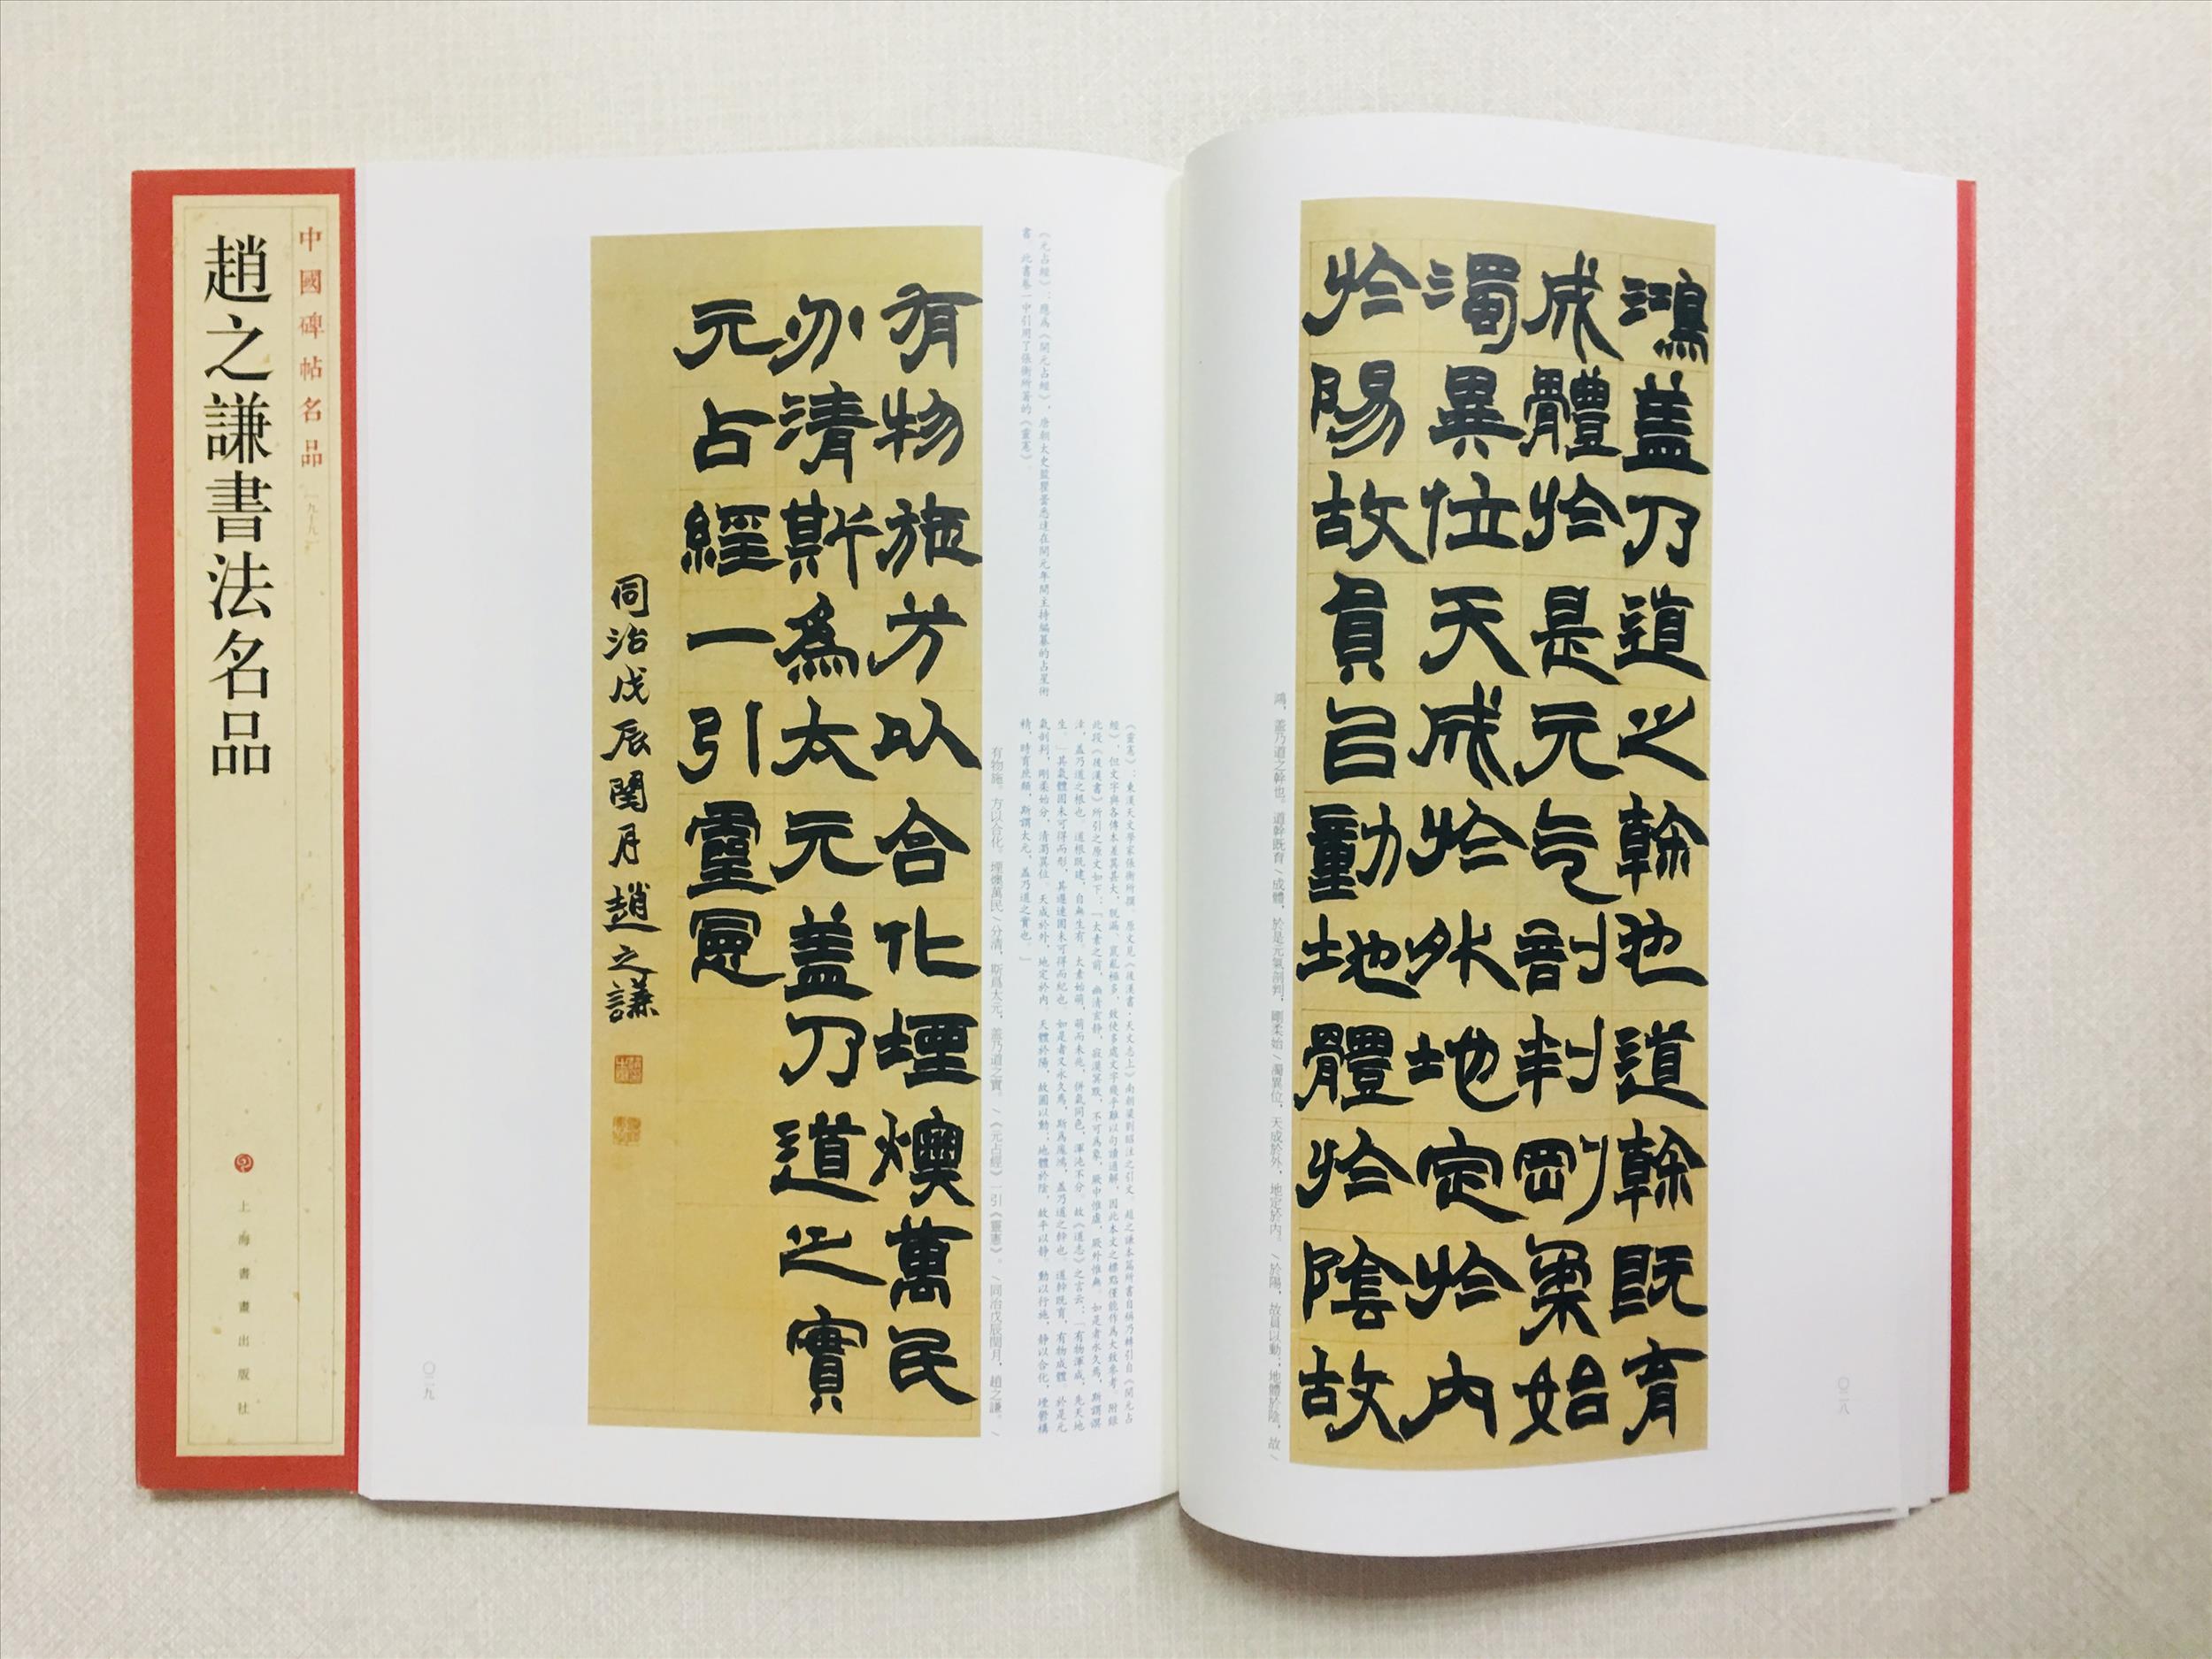 中國碑帖名品
[九十九]
趙之謙書法名品
上海書畫出版社
〇二八
鴻蓋乃道之榦也道榦既育
成體於是元气剖判剛柔始
濁異位天成於外地定於内
於陽故員㠯動地體於陰故
鴻，蓋乃道之幹也。道幹既育/成體，於是元氣剖判，剛柔始/濁異位，天成於外，地定於内。/於陽，故員以動；地體於陰，故/
《元占經》：應為《開元占經》，唐朝太史監瞿曇悉達在開元年間主持編纂的占星術
書，此書卷一中引用了張衡所著的《靈憲》。
《靈憲》：東漢天文學家張衡所撰，原文見《後漢書·天文志上》南朝梁劉昭注之引文。趙之謙本篇所書自稱乃轉引自《開元占
經》，但文字與各傳本差異甚大，脱漏、混亂極多，致使多處文字幾乎難以句讀通解，因此本文之標點僅能作為大致參考，附録
此段《後漢書》所引之原文如下：「太素之前，幽清玄静，寂漠冥默，不可為象，厥中惟虛，厥外惟無。如是者永久焉，斯謂溟
涬，蓋乃道之根也。道根既建，自無生有。太素始萌，萌而未兆，併氣同色，渾沌不分。故《道志》之言云：「有物渾成，先天地
生。」其氣體固未可得而形，其遲速固未可得而紀也。如是者又永久焉，斯為庬鴻，蓋乃道之幹也。道幹既育，有物成體。於是元
氣剖判，剛柔始分，清濁異位。天成於外，地定於内。天體於陽，故圓以動；地體於陰，故平以静。動以行施，静以合化，堙鬱構
精，時育庶類，斯謂太元，蓋乃道之實也。」
有物施。方以合化。堙燠萬民/分清，斯為太元，蓋乃道之實。/《元占經》一引《靈憲》。/同治戊辰閏月，趙之謙。/
有物施方以合化堙燠萬民
分清斯為太元蓋乃道之實
元占經一引靈憲
同治戊辰閏月趙之謙
〇二九